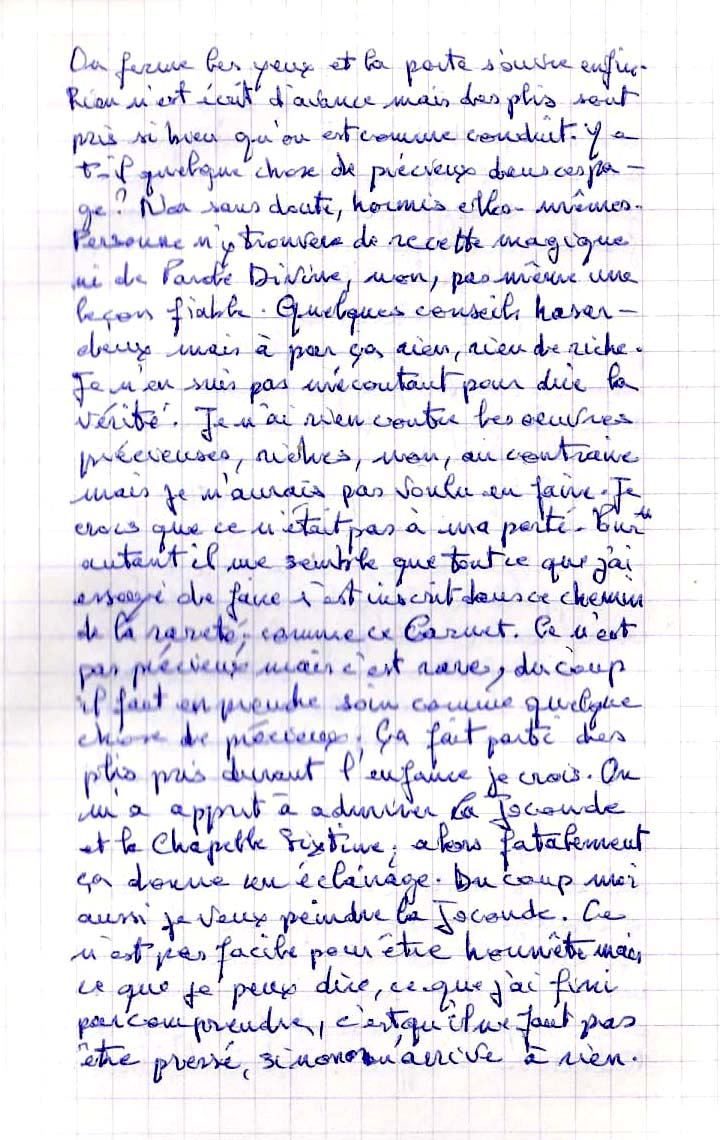 On ferme les yeux et la porte s'ouvre enfin.
Rien n'est écrit d'avance mais des plis sont
pris si bien qu'on est comme conduit. Y a
t-il quelque chose de précieux dans ces pa-
ge? Non sans doute, hormis elles-mêmes.
Personne n'y trouvera de recette magique
ni de Parole Divine, non, pas même une
leçon fiable. Quelques conseils hasar-
deux mais à par ça rien, rien de riche.
Je n'en suis pas mécontant pour dire la
vérité. Je n'ai rien contre les oeuvres
précieuses, riches, non, au contraire
mais je n'aurais pas voulu en faire. Je
crois que ce n'était pas à ma porté. Pour
autant il me semble que tout ce que j'ai
essayé de faire s'est inscrit dans ce chemin
de la rareté, comme ce Carnet. Ce n'est
pas précieux mais c'est rare, du coup
il faut en prendre soin comme quelque
chose de précieux. Ça fait partie des
plis pris durant l'enfance je crois. On
m'a apprit à admirer la Joconde
et la Chapelle Sixtine, alors fatalement
ça donne un éclairage. Du coup moi
aussi je veux peindre la Joconde. Ce
n'est pas facile pour être honnête mais
ce que je peux dire, ce que j'ai fini
par comprendre, c'est qu'il ne faut pas
être pressé, sinon on n'arrive à rien.